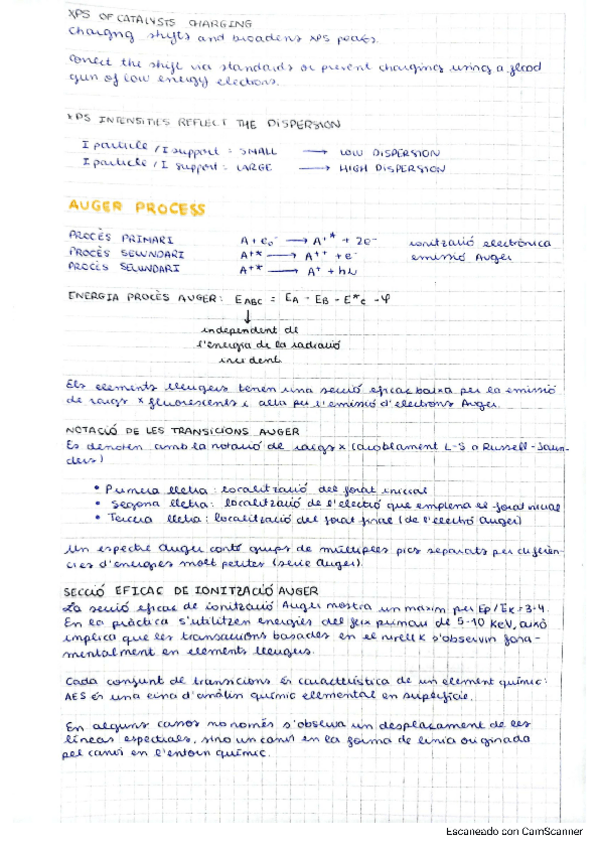 XPS OF CATALYSTS CHARGING
Charging shifts and broadens XPS peaks.
Correct the shift via standards or prevent charging using a flood
gun of low energy electrons.
XPS INTENSITIES REFLECT THE DISPERSION
I particle / I support : SMALL → LOW DISPERSION
I particle / I support : LARGE → HIGH DISPERSION
AUGER PROCESS
PROCÉS PRIMARI A + e₀⁻ → A⁺* + 2e⁻ ionització electrònica
PROCÉS SECUNDARI A⁺* → A⁺⁺ + e⁻ emissió Auger
PROCÉS SECUNDARI A⁺* → A⁺ + hν
ENERGIA PROCÉS AUGER: E_ABC = E_A - E_B - E*_C - φ
↓
independent de
l'energia de la radiació
incident
Els elements lleugers tenen una secció eficaç baixa per la emissió
de raigs x fluorescents i alta per l'emissió d'electrons Auger.
NOTACIÓ DE LES TRANSICIONS AUGER
Es denoten amb la notació de raigs x (acoblament L-S o Russell-Saun-
ders)
• Primera lletra: localització del forat inicial
• Segona lletra: localització de l'electró que emplena el forat inicial
• Tercera lletra: localització del forat final (de l'electró Auger)
Un espectre Auger conté grups de múltiples pics separats per diferèn-
cies d'energies molt petites (sèrie Auger).
SECCIÓ EFICAÇ DE IONITZACIÓ AUGER
La secció eficaç de ionització Auger mostra un màxim per Ep/Ek=3-4.
En la pràctica s'utilitzen energies del feix primari de 5-10 KeV, això
implica que les transicions basades en el nivell K s'observin fona-
mentalment en elements lleugers.
Cada conjunt de transicions és característica de un element químic:
AES és una eina d'anàlisi químic elemental en superfície.
En alguns casos no només s'observa un desplaçament de les
línees espectrals, sino un canvi en la forma de línia originada
pel canvi en l'entorn químic.
Escaneado con CamScanner